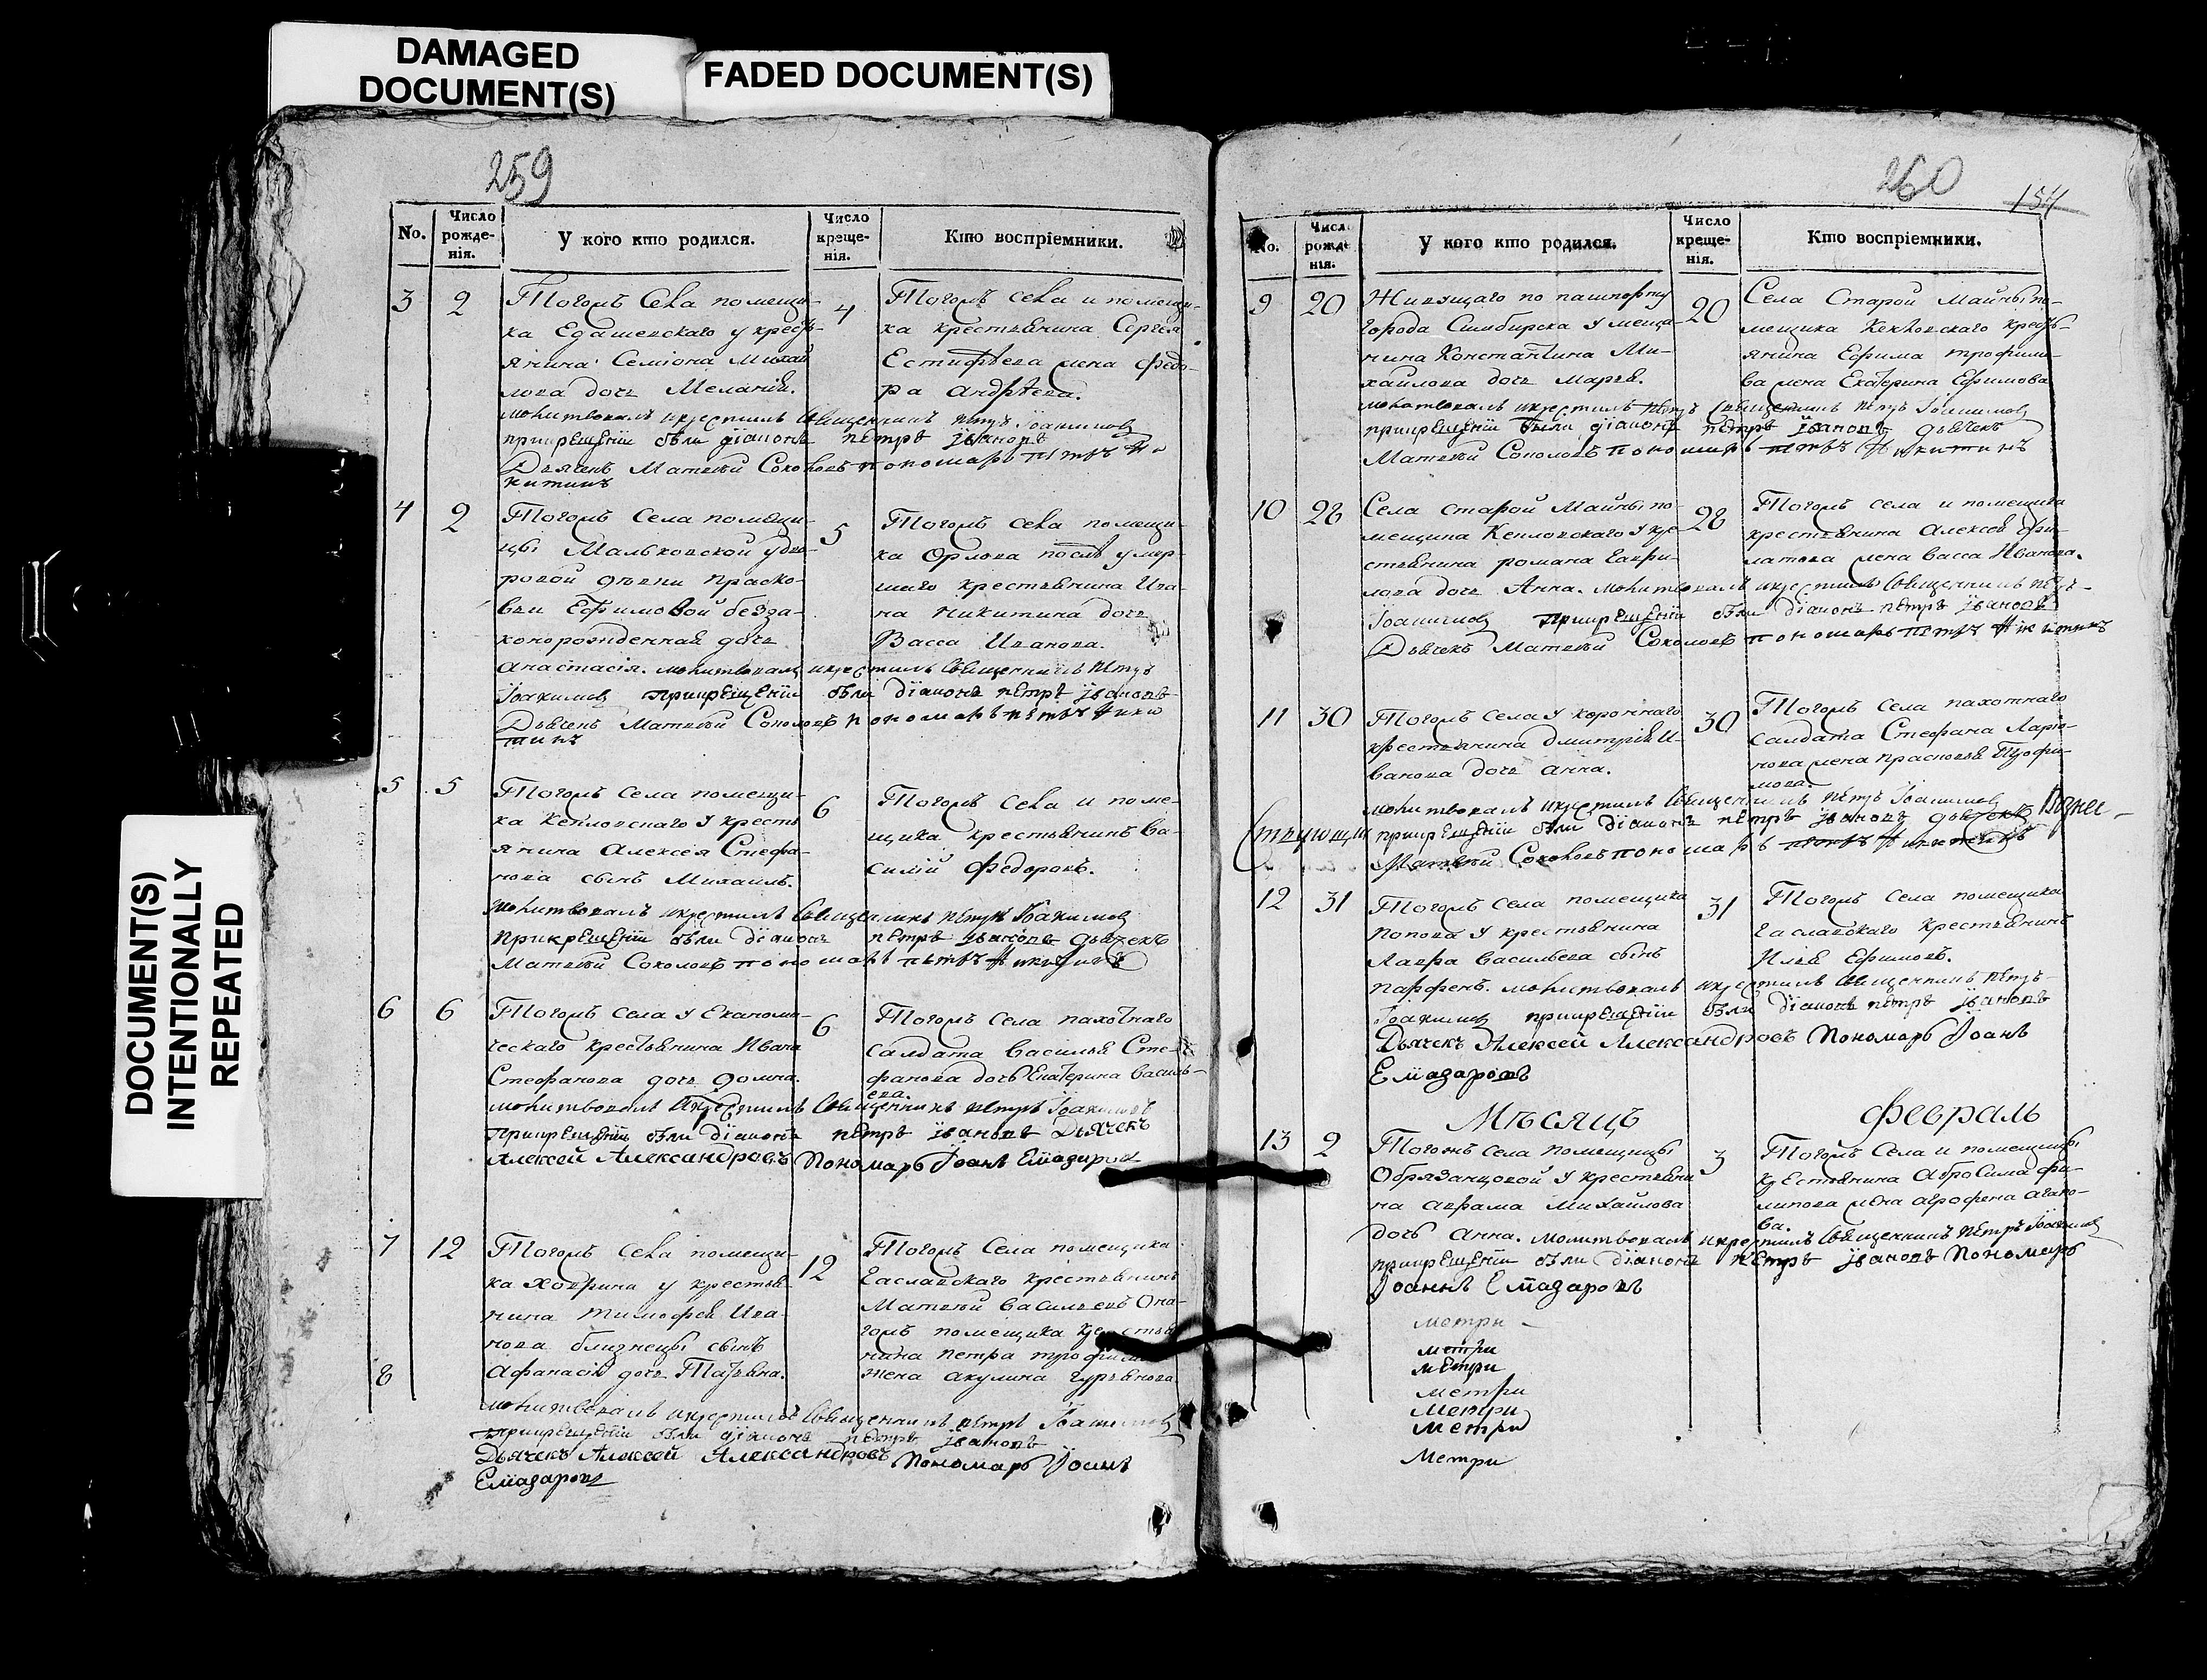 DAMAGED
DOCUMENT(S)
FADED DOCUMENT(S)
DOCUMENT(S)
INTENTIONALLY
REPEATED
259
No.
Число
рожде-
нія.
У кого кто родился.
Число
креще-
нія.
Кто воспріемники.
3
2
Тогожъ Села помещи-
ка Едашевскаго у кресть-
янина Семіона Михай
лова дочь Меланія.
4
Тогожъ села и помещи-
ка крестьянина Сергея
Естифѣева жена Федо-
ра Андрѣева.
молитвовалъ и крестилъ Священникъ Петръ Іоакимовъ
при крещеніи были діаконъ петръ ївановъ
Дьячекъ Матвей Соколовъ пономарь петръ Ни
китинъ
4
2
Тогожъ Села помещи-
цы Мальковской у дво-
ровой девки Праско-
вьи Ефимовой безза-
конорожденная дочь
Анастасія. молитвовалъ и крестилъ Священникъ Петръ
5
Тогожъ села помещи-
ка Орлова послѣ умер-
шаго крестьянина Ива-
на Никитина дочь
Васса Иванова.
Іоакимовъ при крещеніи были діаконъ петръ ївановъ
Дьячекъ Матвей Соколовъ пономарь петръ Ники
тинъ
5
5
Тогожъ Села помещи-
ка Кепловскаго у кресть
янина Алексея Стефа-
нова сынъ Михаилъ.
6
Тогожъ Села и поме-
щика крестьянинъ Ва-
силій Федоровъ.
молитвовалъ и крестилъ Священникъ петръ Іоакимовъ
при крещеніи были діаконъ петръ ївановъ дьячекъ
Матвей Соколовъ пономарь петръ Никитинъ
6
6
Тогожъ Села у Економи-
ческаго крестьянина Ивана
Стефанова дочь Домна.
6
Тогожъ Села пахотнаго
салдата Василья Сте-
фанова дочь Екатерина Василь-
ева.
молитвовалъ и крестилъ Священникъ Петръ Іоакимовъ
при крещеніи были діаконъ петръ ївановъ Дьячекъ
Алексей Александровъ Пономарь Іоанъ Елїазаровъ
7
12
Тогожъ Села помещи-
ка Ховрина у крестья-
нина Тимофея Ива-
нова близнецы сынъ
8
Афанасій дочь Татьяна.
12
Тогожъ Села помещика
Гаславскаго крестьянинъ
Матвей Васильевъ Она-
гожъ помещика крестья
нина петра трофимова
жена Акулина Гурьянова
молитвовалъ и крестилъ Священникъ петръ Іоакимовъ
при крещеніи были діаконъ петръ ївановъ
Дьячекъ Алексей Александровъ Пономарь Іоанъ
Елїазаровъ
260
134
No.
Число
рожде
нія.
У кого кто родился.
Число
креще-
нія.
Кто воспріемники.
9
20
Живущаго по пашпорту
города Симбирска у меща-
нина Константина Ми-
хайлова дочь Марья.
20
Села Старой Майны по-
мещика Кепловскаго кресть-
янина Ефима трофимо-
ва жена Екатерина Ефимова
молитвовалъ и крестилъ Священникъ петръ Іоакимовъ
при крещеніи были діаконъ петръ ївановъ дьячекъ
Матвей Соколовъ пономарь петръ Никитинъ
10
28
Села Старой Майны по-
мещика Кепловскаго у кре-
стьянина романа Гаври-
лова дочь Анна. молитвовалъ и крестилъ Священникъ петръ
28
Тогожъ села и помещика
крестьянина Алексея Фи-
латова жена Васса Иванова.
Іоакимовъ при крещеніи были діаконъ петръ ївановъ
Дьячекъ Матвей Соколовъ пономарь петръ Никитинъ
11
30
Тогожъ Села у коронного
крестьянина Дмитрія И-
ванова дочь Анна.
30
Тогожъ Села пахотнаго
салдата Стефана Ларіо-
нова жена прасковья Трофи-
мова.
молитвовалъ и крестилъ Священникъ петръ Іоакимовъ
при крещеніи были діаконъ петръ ївановъ дьячекъ
Матвей Соколовъ пономарь петръ Никитинъ
12
31
Тогожъ Села помещика
попова у крестьянина
Лавра Васильева сынъ
парфенъ. молитвовалъ и крестилъ Священникъ петръ
31
Тогожъ Села помещика
Гаславскаго крестьянинъ
Илья Ефимовъ.
Іоакимовъ при крещеніи были діаконъ петръ ївановъ
Дьячекъ Алексей Александровъ Пономарь Іоанъ
Елїазаровъ
Мѣсяцъ Февраль
13
2
Тогожъ села помещицы
Обрязанцовой у крестьяни
на Аврама Михайлова
дочь Анна. молитвовалъ и крестилъ Священникъ петръ Іоакимовъ
3
Тогожъ Села и помещицы
крестьянина Абросима Фи-
липова жена Агрофена Агапо-
ва.
при крещеніи были діаконъ петръ ївановъ Пономарь
Іоаннъ Елїазаровъ
метри
метри
метри
метри
Метри
Метри
Метри